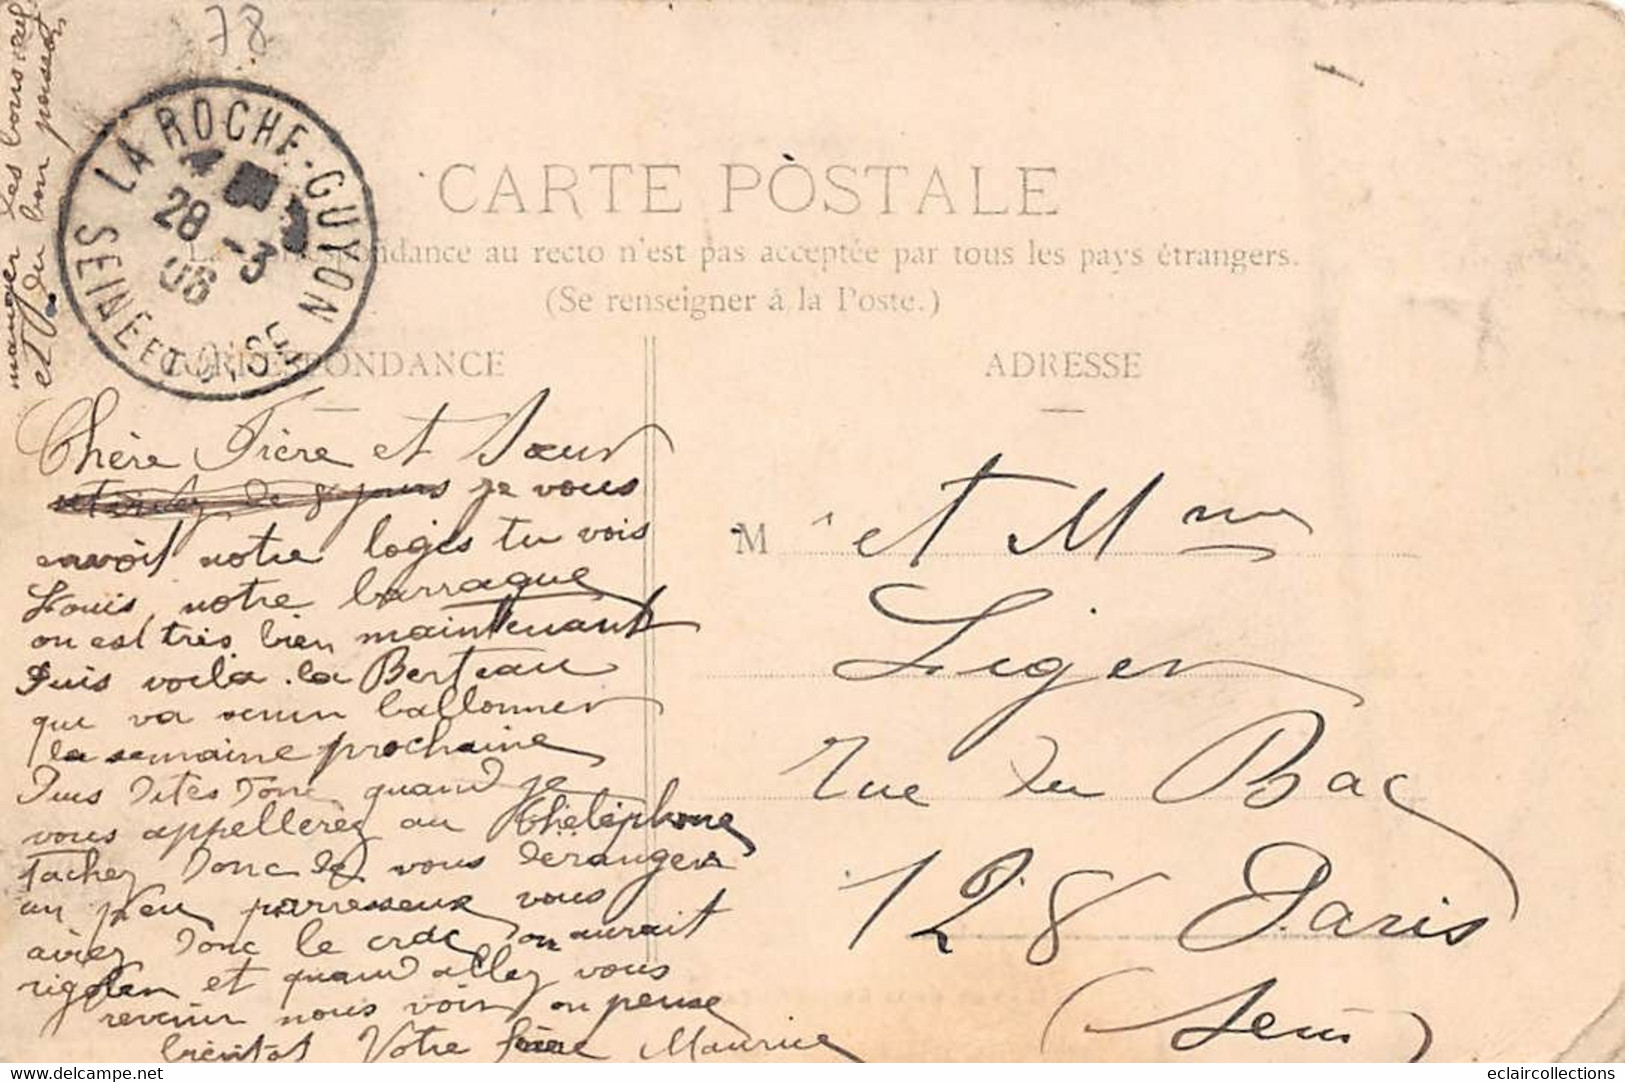 78
manger les
et du bon poisson
LA ROCHE-GUYON
28 -3
06
SEINE ET OISE
CARTE POSTALE
La correspondance au recto n'est pas acceptée par tous les pays étrangers.
(Se renseigner à la Poste.)
CORRESPONDANCE
ADRESSE
Chère Frère et Sœur
de 8 jours je vous
envoit notre logis tu vois
Louis, notre barraque
on est très bien maintenant
Puis voila la Berteau
que va venir ballonner
la semaine prochaine
Puis dites donc quand je
vous appellerez au Théléphone
tachez donc de vous déranger
un peu parresseux vous
avez donc le crac on aurait
rigoler et quand allez vous
revenir nous voir on pense
bientot Votre frère Maurice
M r et Mme
Liger
rue du Bac
128 Paris
(Seine)
eclaircollections